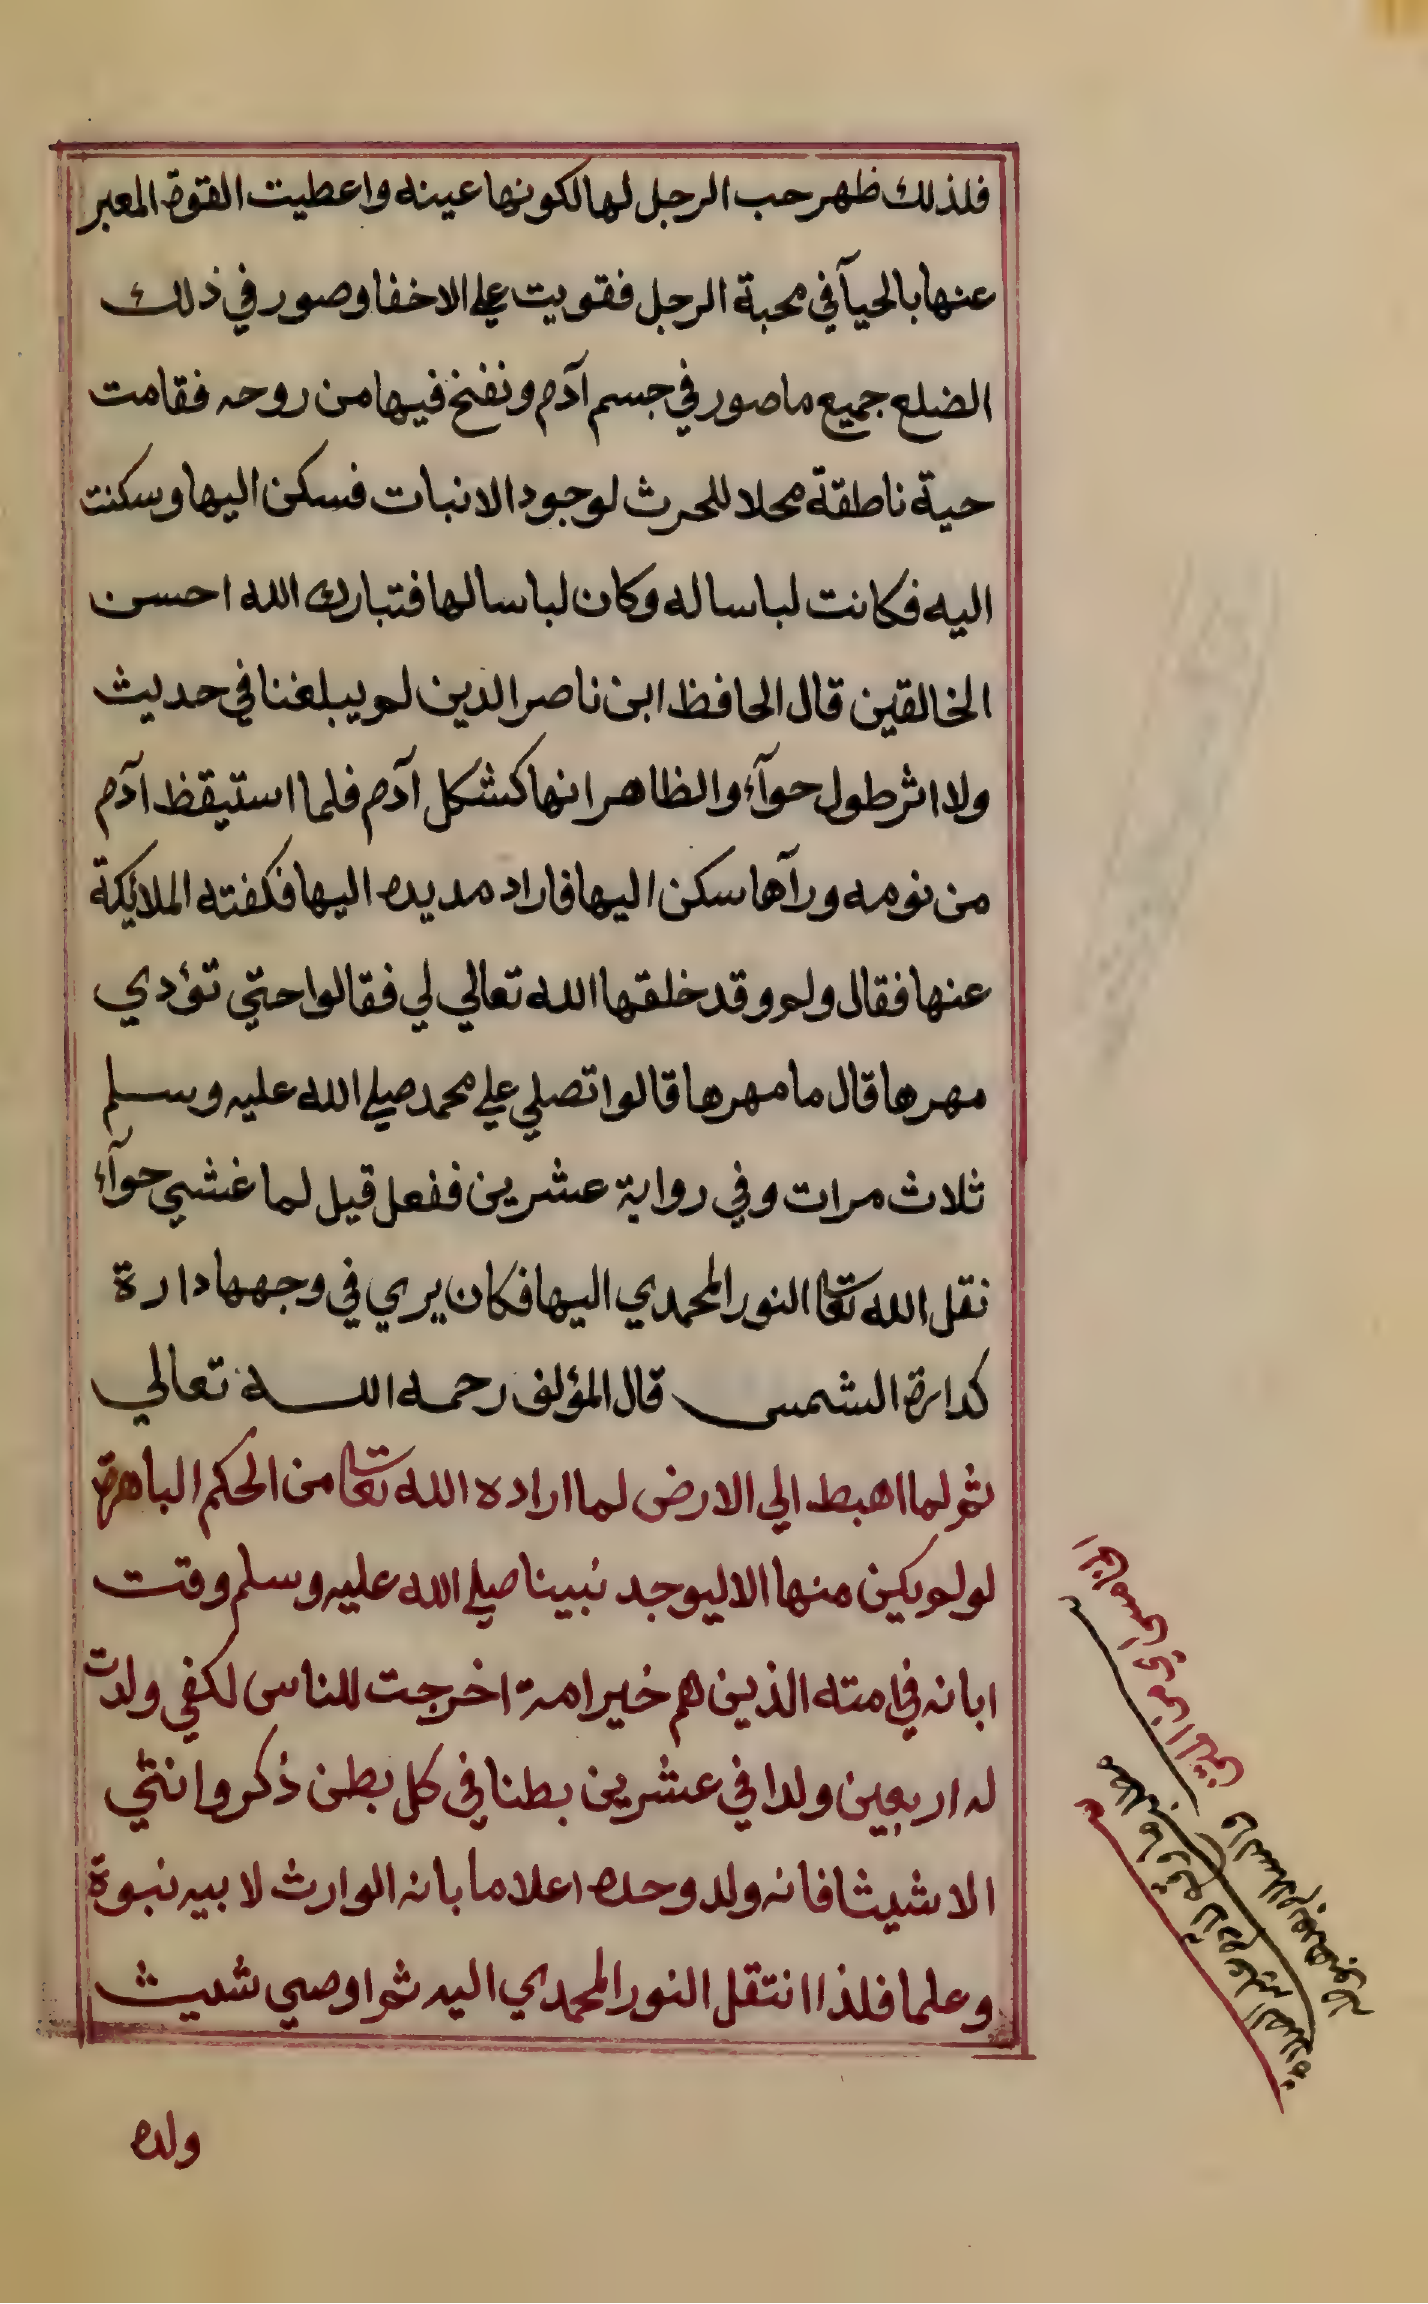 فلذلك ظهر حب الرجل لها لكونها عينه واعطيت القوة المعبر
عنها بالحيآ في محبة الرجل فقويت علي الاخفا وصور في ذلك
الضلع جميع ما صور في جسم آدم ونفخ فيها من روحه فقامت
حية ناطقة محلا للحرث لوجود الانبات فسكن اليها وسكنت
اليه فكانت لباسا له وكان لباسا لها فتبارك الله احسن
الخالقين قال الحافظ ابن ناصر الدين لم يبلغنا في حديث
ولا اثر طول حوآء والظاهر انها كشكل آدم فلما استيقظ آدم
من نومه ورآها سكن اليها فاراد مد يده اليها فكفته الملائكة
عنها فقال ولم وقد خلقها الله تعالي لي فقالوا حتي تؤدي
مهرها قال ما مهرها قالوا تصلي علي محمد صلي الله عليه وسلم
ثلاث مرات وفي رواية عشرين ففعل قيل لما غشي حوآء
نقل الله تعا النور المحمدي اليها فكان يري في وجهها دارة
كدارة الشمس قال المؤلف رحمه الله تعالي
ثم لما اهبط الي الارض لما اراده الله تعا من الحكم الباهرة
لو لم يكن منها الا ليوجد نبينا صلي الله عليه وسلم وقت
ابانه في امته الذين هم خير امة اخرجت للناس لكفي ولدت
له اربعين ولدا في عشرين بطنا في كل بطن ذكر وانثي
الا شيثا فانه ولد وحده اعلاما بانه الوارث لابيه نبوة
وعلما فلذا انتقل النور المحمدي اليه ثم اوصي شيث
ولده